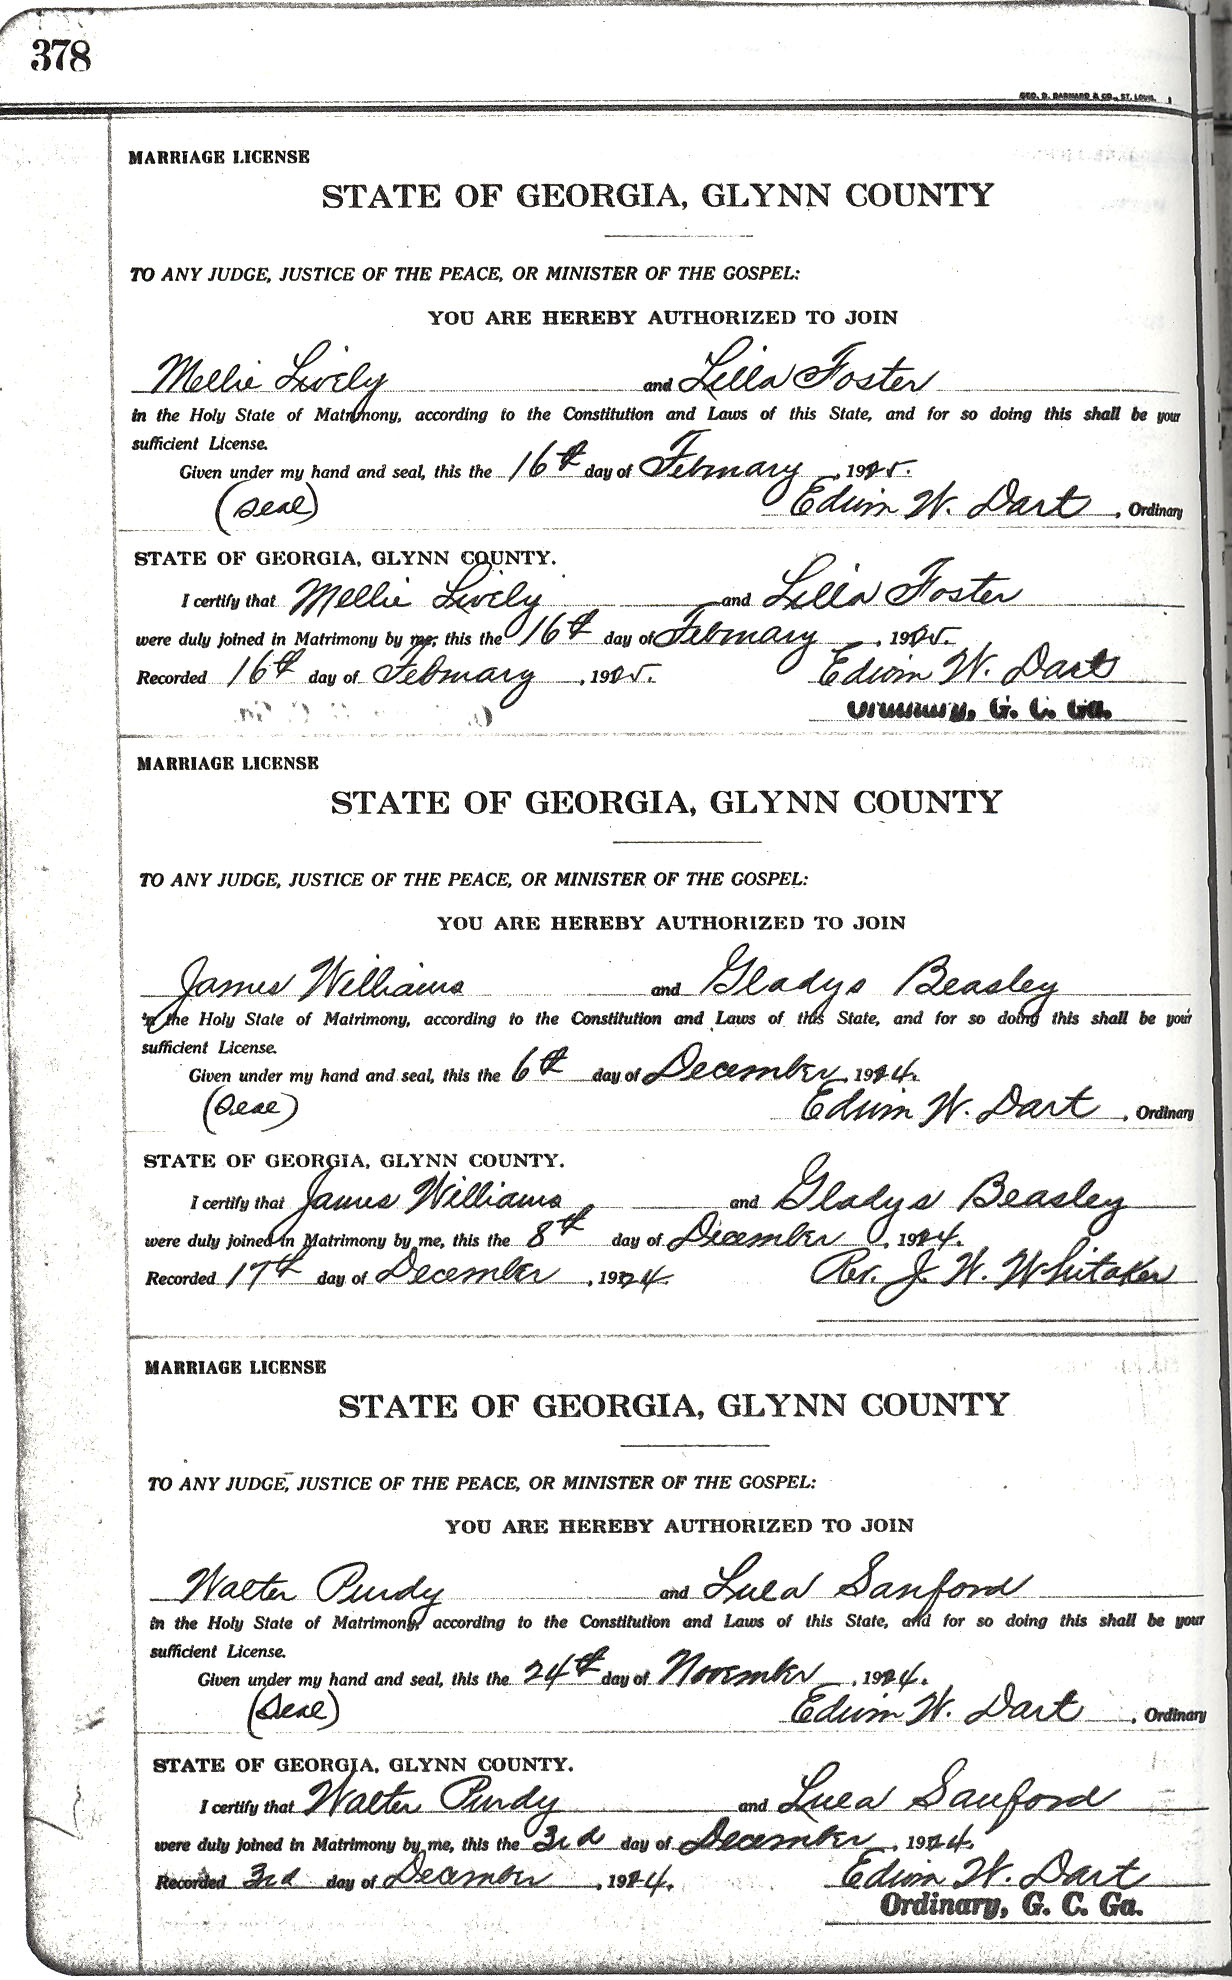 378
GEO. D. BARNARD & CO., ST. LOUIS.
MARRIAGE LICENSE
STATE OF GEORGIA, GLYNN COUNTY
TO ANY JUDGE, JUSTICE OF THE PEACE, OR MINISTER OF THE GOSPEL:
YOU ARE HEREBY AUTHORIZED TO JOIN
Mellie Lively and Lilla Foster
in the Holy State of Matrimony, according to the Constitution and Laws of this State, and for so doing this shall be your
sufficient License.
Given under my hand and seal, this the 16th day of February, 1925.
(Seal) Edwin W. Dart, Ordinary
STATE OF GEORGIA, GLYNN COUNTY.
I certify that Mellie Lively and Lilla Foster
were duly joined in Matrimony by me, this the 16th day of February, 1925.
Recorded 16th day of February, 1925. Edwin W. Dart
Ordinary, G. C. Ga.
MARRIAGE LICENSE
STATE OF GEORGIA, GLYNN COUNTY
TO ANY JUDGE, JUSTICE OF THE PEACE, OR MINISTER OF THE GOSPEL:
YOU ARE HEREBY AUTHORIZED TO JOIN
James Williams and Gladys Beasley
in the Holy State of Matrimony, according to the Constitution and Laws of this State, and for so doing this shall be your
sufficient License.
Given under my hand and seal, this the 6th day of December, 1924.
(Seal) Edwin W. Dart, Ordinary
STATE OF GEORGIA, GLYNN COUNTY.
I certify that James Williams and Gladys Beasley
were duly joined in Matrimony by me, this the 8th day of December, 1924.
Recorded 17th day of December, 1924 Rev. J. W. Whitaker
MARRIAGE LICENSE
STATE OF GEORGIA, GLYNN COUNTY
TO ANY JUDGE, JUSTICE OF THE PEACE, OR MINISTER OF THE GOSPEL:
YOU ARE HEREBY AUTHORIZED TO JOIN
Walter Purdy and Lula Sanford
in the Holy State of Matrimony, according to the Constitution and Laws of this State, and for so doing this shall be your
sufficient License.
Given under my hand and seal, this the 24th day of November, 1924.
(Seal) Edwin W. Dart, Ordinary
STATE OF GEORGIA, GLYNN COUNTY.
I certify that Walter Purdy and Lula Sanford
were duly joined in Matrimony by me, this the 3rd day of December, 1924.
Recorded 3rd day of December, 1924. Edwin W. Dart
Ordinary, G. C. Ga.